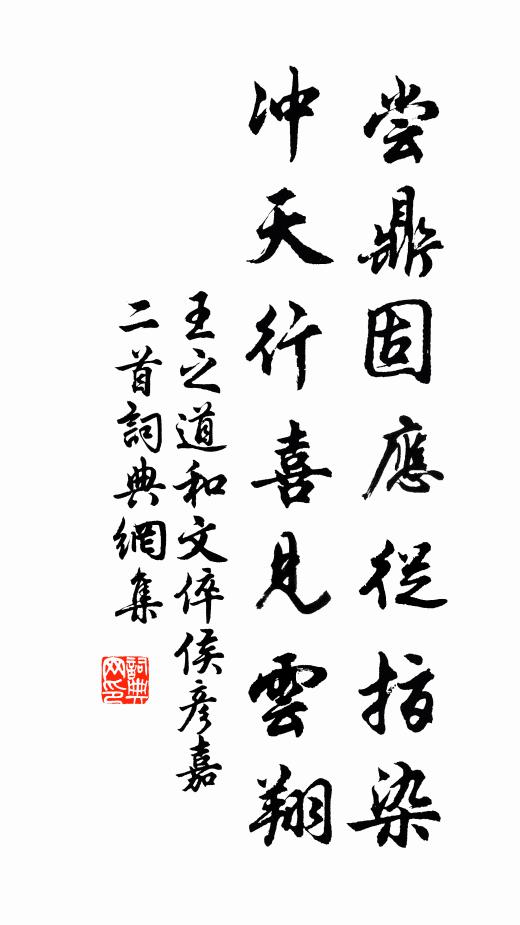 尝鼎固應從指染
冲天行喜見雲翔
王之道和文倅侯彦嘉
二首詞典網集
詞典網印